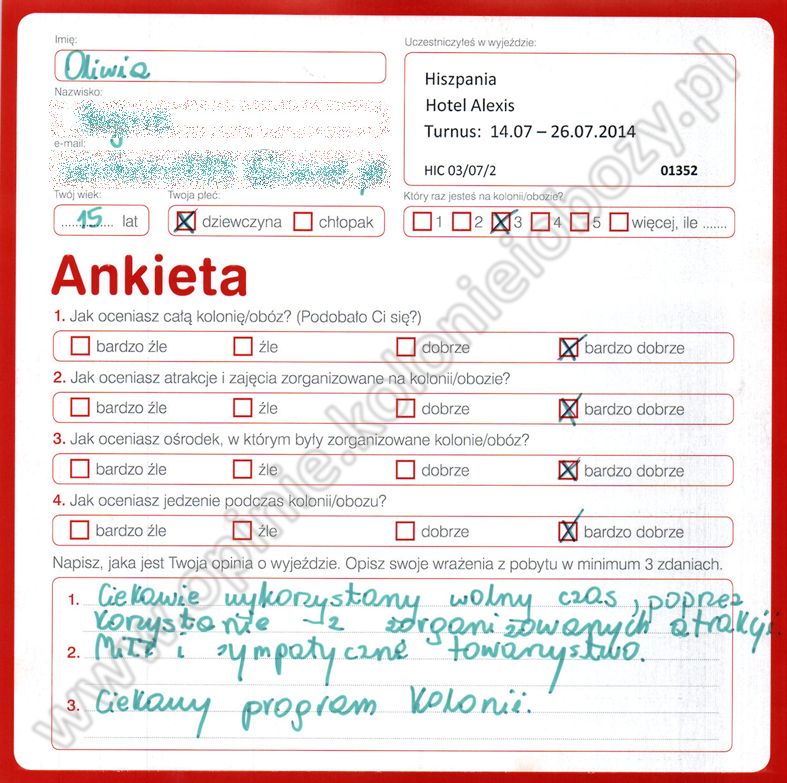 Imię:
Oliwia
Nazwisko:
e-mail:
Uczestniczyłeś w wyjeździe:
Hiszpania
Hotel Alexis
Turnus: 14.07 – 26.07.2014
HIC 03/07/2 01352
Twój wiek:
15 lat
Twoja płeć:
dziewczyna chłopak
Który raz jesteś na kolonii/obozie?
1 2 3 4 5 więcej, ile .......
Ankieta
1. Jak oceniasz całą kolonię/obóz? (Podobało Ci się?)
bardzo źle źle dobrze bardzo dobrze
2. Jak oceniasz atrakcje i zajęcia zorganizowane na kolonii/obozie?
bardzo źle źle dobrze bardzo dobrze
3. Jak oceniasz ośrodek, w którym były zorganizowane kolonie/obóz?
bardzo źle źle dobrze bardzo dobrze
4. Jak oceniasz jedzenie podczas kolonii/obozu?
bardzo źle źle dobrze bardzo dobrze
Napisz, jaka jest Twoja opinia o wyjeździe. Opisz swoje wrażenia z pobytu w minimum 3 zdaniach.
1. Ciekawie wykorzystany wolny czas, poprzez
korzystanie z zorganizowanych atrakcji.
2. Miłe i sympatyczne towarzystwo.
3. Ciekawy program kolonii.
www.opinie.kolonieiobozy.pl